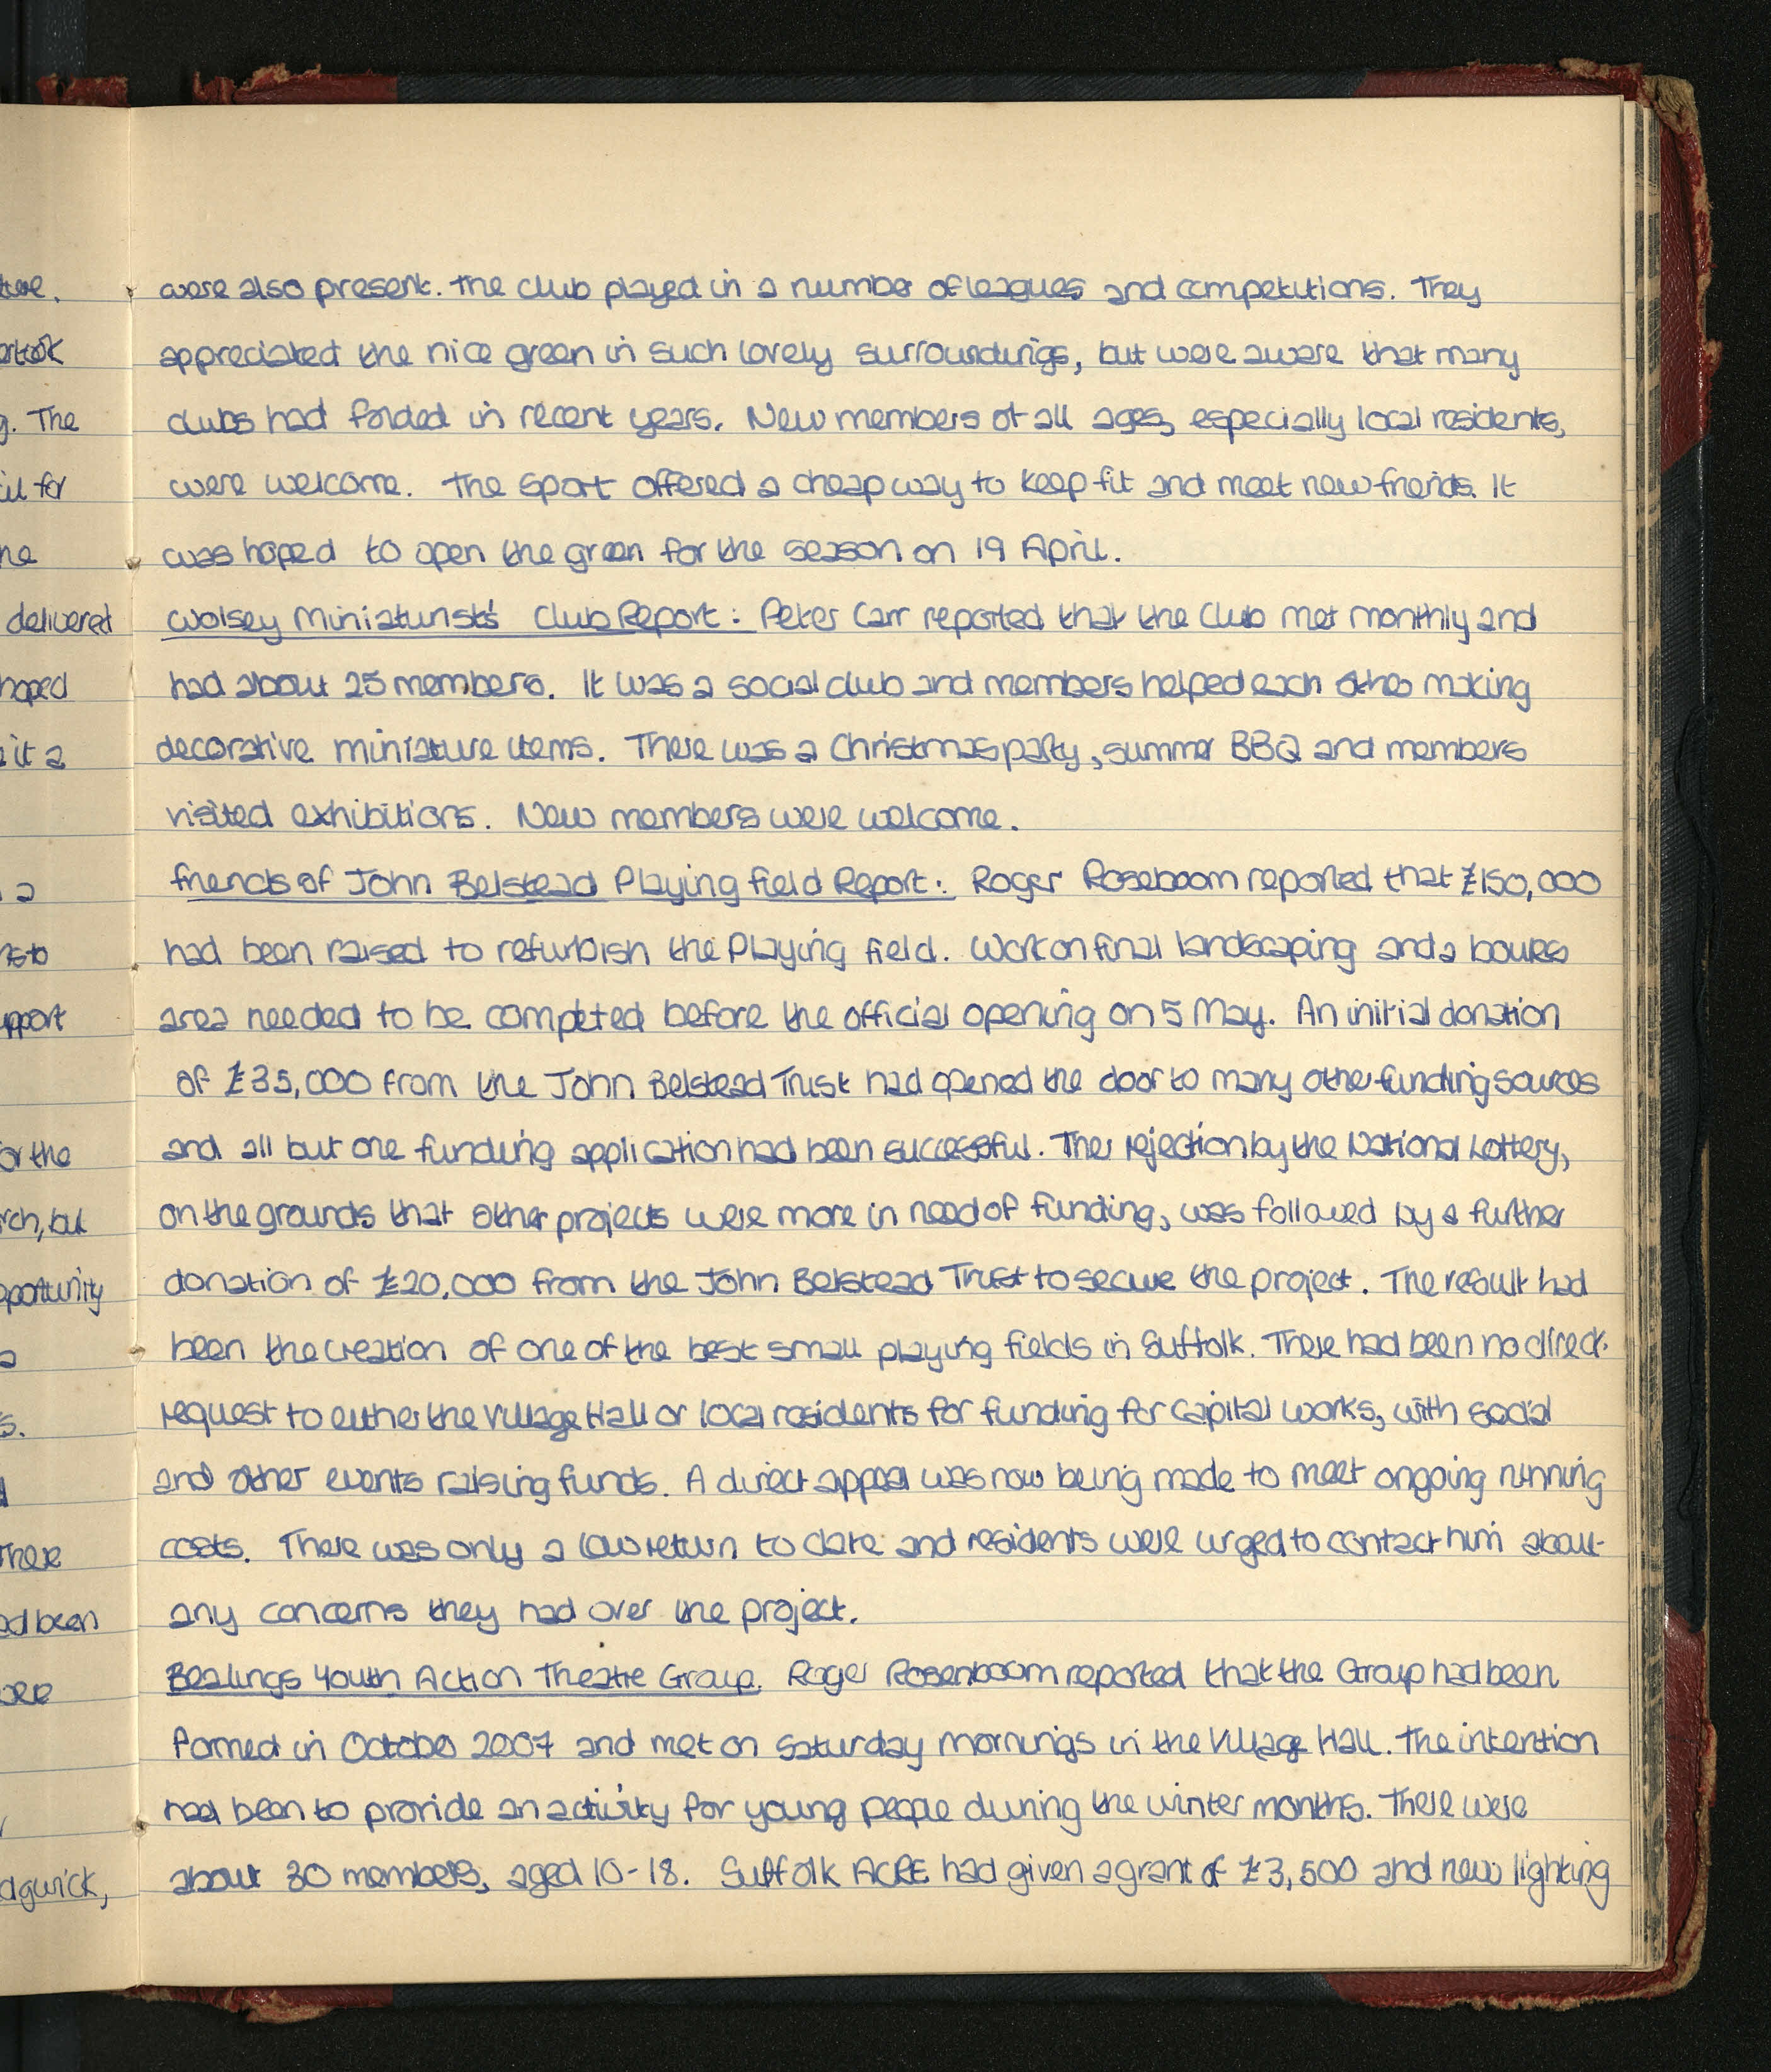 were also present. The club played in a number of leagues and competitions. They
appreciated the nice green in such lovely surroundings, but were aware that many
clubs had folded in recent years. New members of all ages, especially local residents,
were welcome. The sport offered a cheap way to keep fit and meet new friends. It
was hoped to open the green for the season on 19 April.
Wolsey Miniaturists' Club Report: Peter Carr reported that the Club met monthly and
had about 25 members. It was a social club and members helped each other making
decorative miniature items. There was a Christmas party, summer BBQ and members
visited exhibitions. New members were welcome.
Friends of John Belstead Playing Field Report: Roger Roseboom reported that £150,000
had been raised to refurbish the Playing Field. Work on final landscaping and a boules
area needed to be completed before the official opening on 5 May. An initial donation
of £35,000 from the John Belstead Trust had opened the door to many other funding sources
and all but one funding application had been successful. The rejection by the National Lottery,
on the grounds that other projects were more in need of funding, was followed by a further
donation of £20,000 from the John Belstead Trust to secure the project. The result had
been the creation of one of the best small playing fields in Suffolk. There had been no direct
request to either the Village Hall or local residents for funding for capital works, with social
and other events raising funds. A direct appeal was now being made to meet ongoing running
costs. There was only a low return to date and residents were urged to contact him about
any concerns they had over the project.
Bealings Youth Action Theatre Group. Roger Rosenboom reported that the Group had been
formed in October 2007 and met on Saturday mornings in the Village Hall. The intention
had been to provide an activity for young people during the winter months. There were
about 30 members, aged 10-18. Suffolk ACRE had given a grant of £3,500 and new lighting